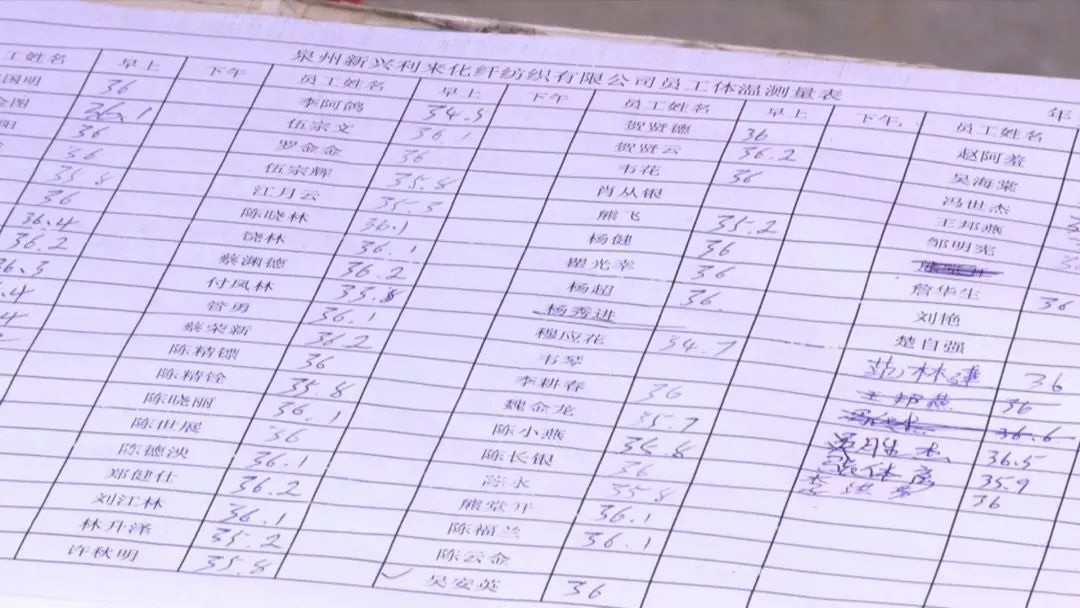 泉州新兴利来化纤纺织有限公司员工体温测量表
年
工姓名 早上 下午 员工姓名 早上 下午 员工姓名 早上 下午 员工姓名
国明 36 李阿鸽 34.5 贺贤德 36 赵阿羞
36.1 伍宗文 36.1 贺贤云 36.2 吴海棠
36 罗金金 36 韦花 36 冯世杰
36 伍宗辉 35.8 肖从银 王邦燕
35.8 江月云 35.3 熊飞 35.2 邹明宪
36 陈晓林 36.1 杨健 36
36.4 饶林 36.1 瞿光幸 36 詹华生 36
36.2 蔡渊德 36.2 杨超 36 刘艳
36.3 付凤林 杨秀进 楚自强
管勇 36.1 穆应花 34.7
蔡荣新 36.2 韦琴 36
陈精镖 36 李耕春 36 36.6
陈精铨 35.8 魏金龙 35.7 36.5
陈晓丽 36.1 陈小燕 35.9
陈世展 36 陈长银 36 36
陈德泱 36.1 陈永 35.8
郑健仕 36.2 熊堂开 36.1
刘江林 36.1 陈福兰 36.1
林升泽 35.2 陈云金
许秋明 35.8 吴安英 36